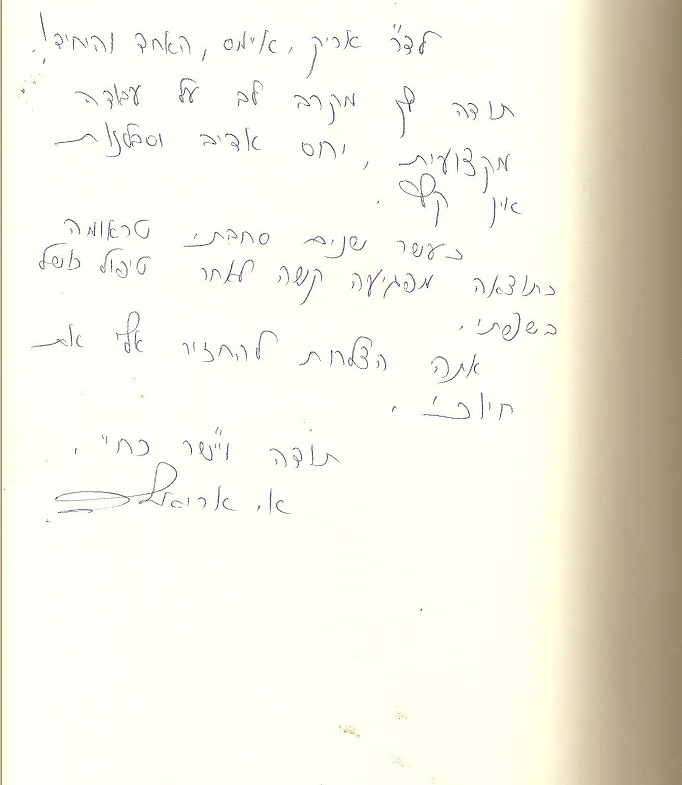 לד"ר אריק, אימס, האחד והיחיד!
תודה לך מקרב לב על עבודה
מקצועית, יחס אדיב וסבלנות
אין קץ.
כעשר שנים סחבתי טראומה
כתוצאה מפגיעה קשה לאחר טיפול כושל
בשפתי.
אתה הצלחת להחזיר אלי את
חיוכי.
תודה ויישר כח",
א. אריאל